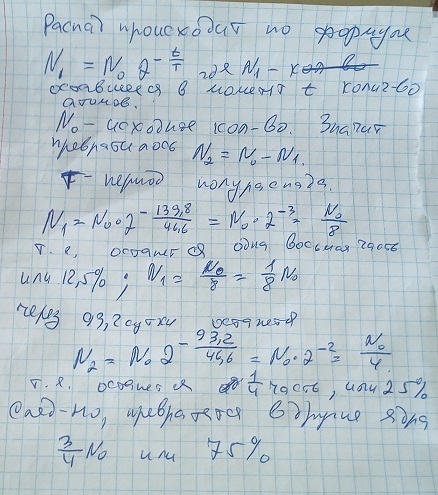 Распад происходит по формуле
N₁ = N₀ 2^(-t/T) где N₁ - кол-во
оставшееся в момент t колич-во
атомов.
N₀ - исходное кол-во. Значит
превратилось N₂ = N₀ - N₁.
T - период полураспада.
N₁ = N₀ · 2^(-139,8/46,6) = N₀ · 2^(-3) = N₀/8
т.е. останется одна восьмая часть
или 12,5% ; N₁ = N₀/8 = 1/8 N₀
через 93,2 сутки останется
N₂ = N₀ 2^(-93,2/46,6) = N₀ · 2^(-2) = N₀/4.
т.е. останется 1/4 часть, или 25%
След-но, превратется в другие ядра
3/4 N₀ или 75%